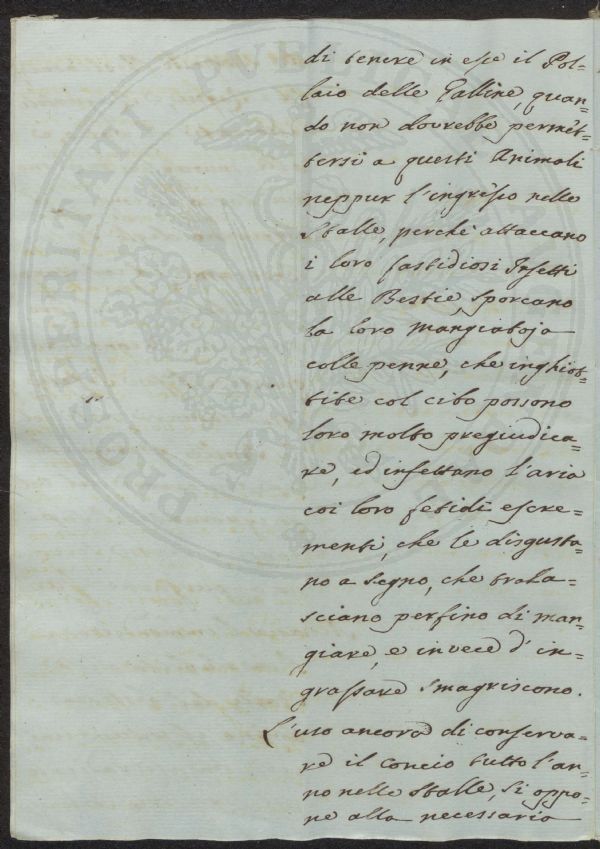 di tenere in esse il Pol=
laio delle Galline, quan=
do non dovrebbe permet=
tersi a questi Animali
neppur l'ingresso nelle
Stalle, perchè attaccano
i loro fastidiosi Insetti
alle Bestie, sporcano
la loro mangiatoja
colle penne, che inghiot=
tite col cibo possono
loro molto pregiudica=
re, ed infettano l'aria
coi loro fetidi escre=
menti, che le disgusta=
no a segno, che trala=
sciano perfino di man=
giare, e invece d'in=
grassare smagriscono.
L'uso ancora di conserva=
re il concio tutto l'an=
no nelle stalle, si oppo=
ne alla necessaria
PROSPERITATI PUBLICAE